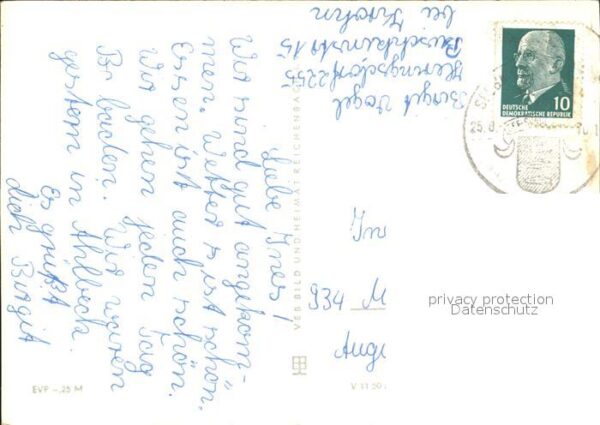 Liebe Ines!
Wir sind gut angekom-
men. Wetter ist schön.
Essen ist auch schön.
Wir gehen jeden Tag
Br baden. Wir waren
gestern in Ahlbeck
Es grüßt
dich Birgit
Birgit Vogel
Heringsdorf 2255
Puschkinstr 15
bei Krohn
DEUTSCHE
DEMOKRATISCHE REPUBLIK
10
25.
VEB BILD UND HEIMAT REICHENBACH
Ine
934 M
Auge
privacy protection
Datenschutz
EVP -,25 M
V 11 50